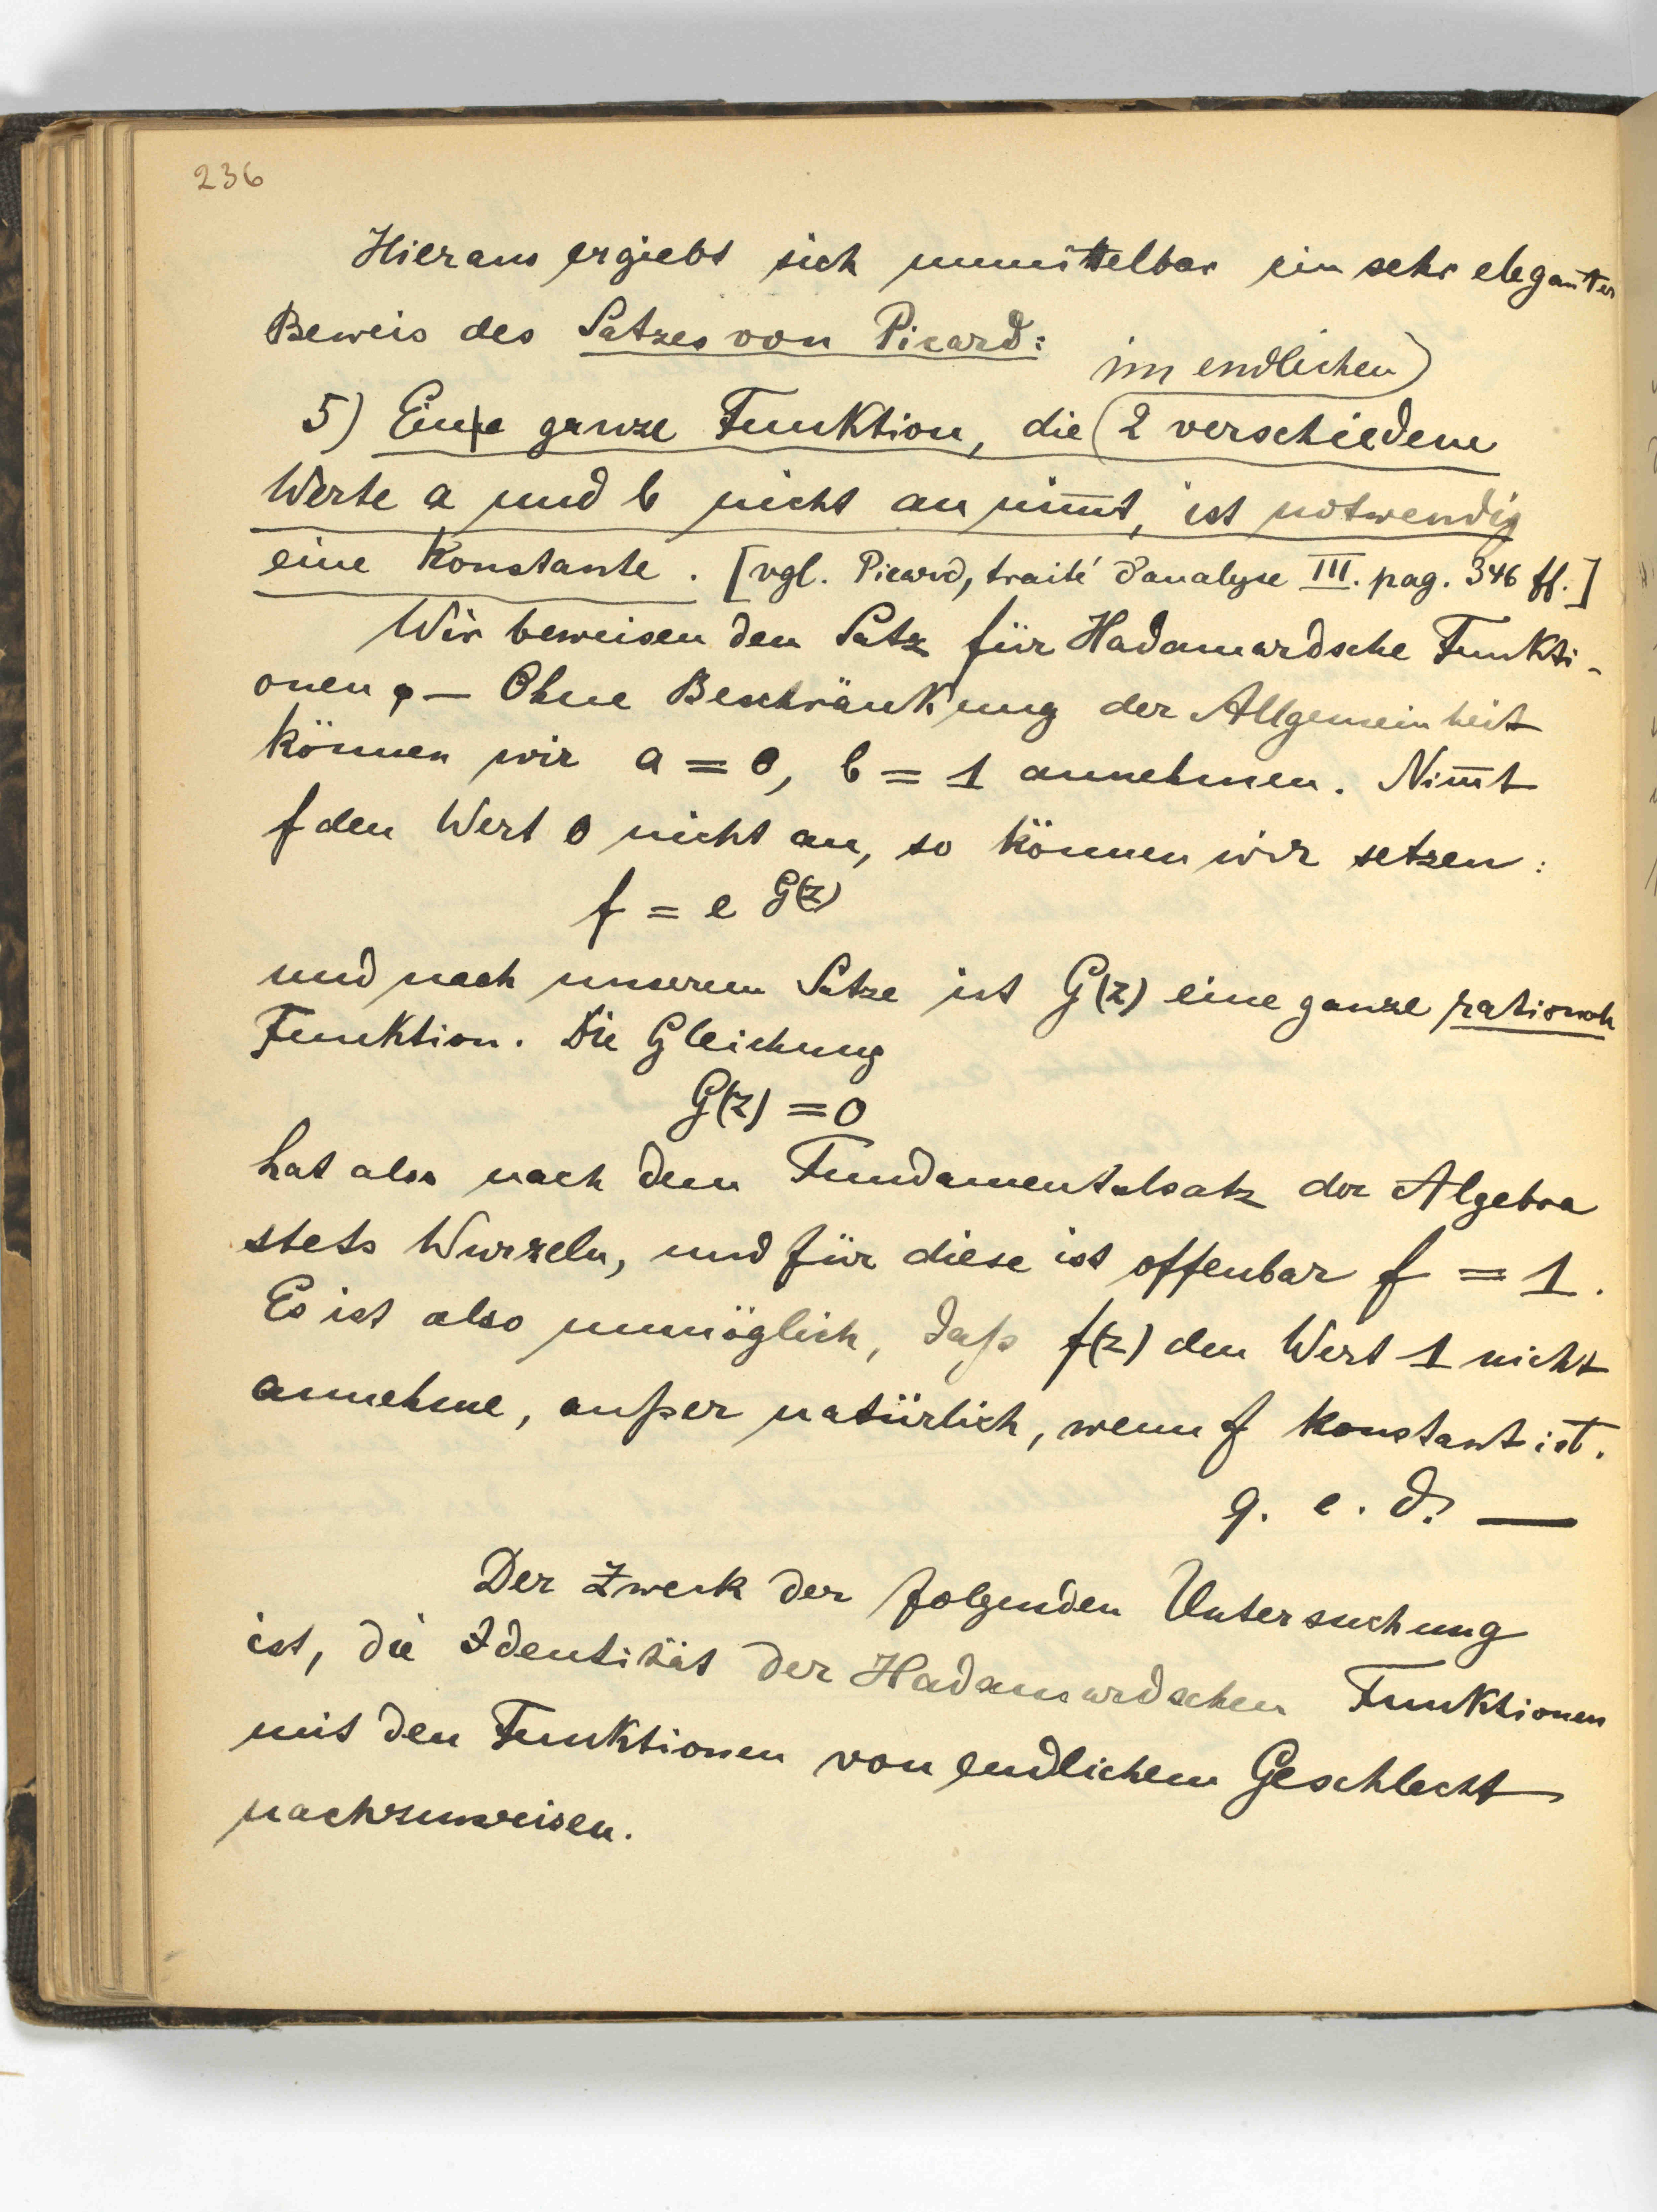 236
Hieraus ergiebt sich unmittelbar ein sehr eleganter
Beweis des Satzes von Picard:
im endlichen
5) Eine ganze Funktion, die 2 verschiedene
Werte a und b nicht annim̅t, ist notwendig
eine Konstante. [vgl. Picard, traité d'analyse III. pag. 346 ff.]
Wir beweisen den Satz für Hadamardsche Funkti-
onen. — Ohne Beschränkung der Allgemeinheit
können wir a = 0, b = 1 annehmen. Nim̅t
f den Wert 0 nicht an, so können wir setzen:
f = e^G(z)
und nach unserem Satze ist G(z) eine ganze rationale
Funktion. Die Gleichung
G(z) = 0
hat also nach dem Fundamentalsatz der Algebra
stets Wurzeln, und für diese ist offenbar f = 1.
Es ist also unmöglich, daß f(z) den Wert 1 nicht
annehme, außer natürlich, wenn f konstant ist.
q. e. d. —
Der Zweck der folgenden Untersuchung
ist, die Identität der Hadamardschen Funktionen
mit den Funktionen von endlichem Geschlecht
nachzuweisen.